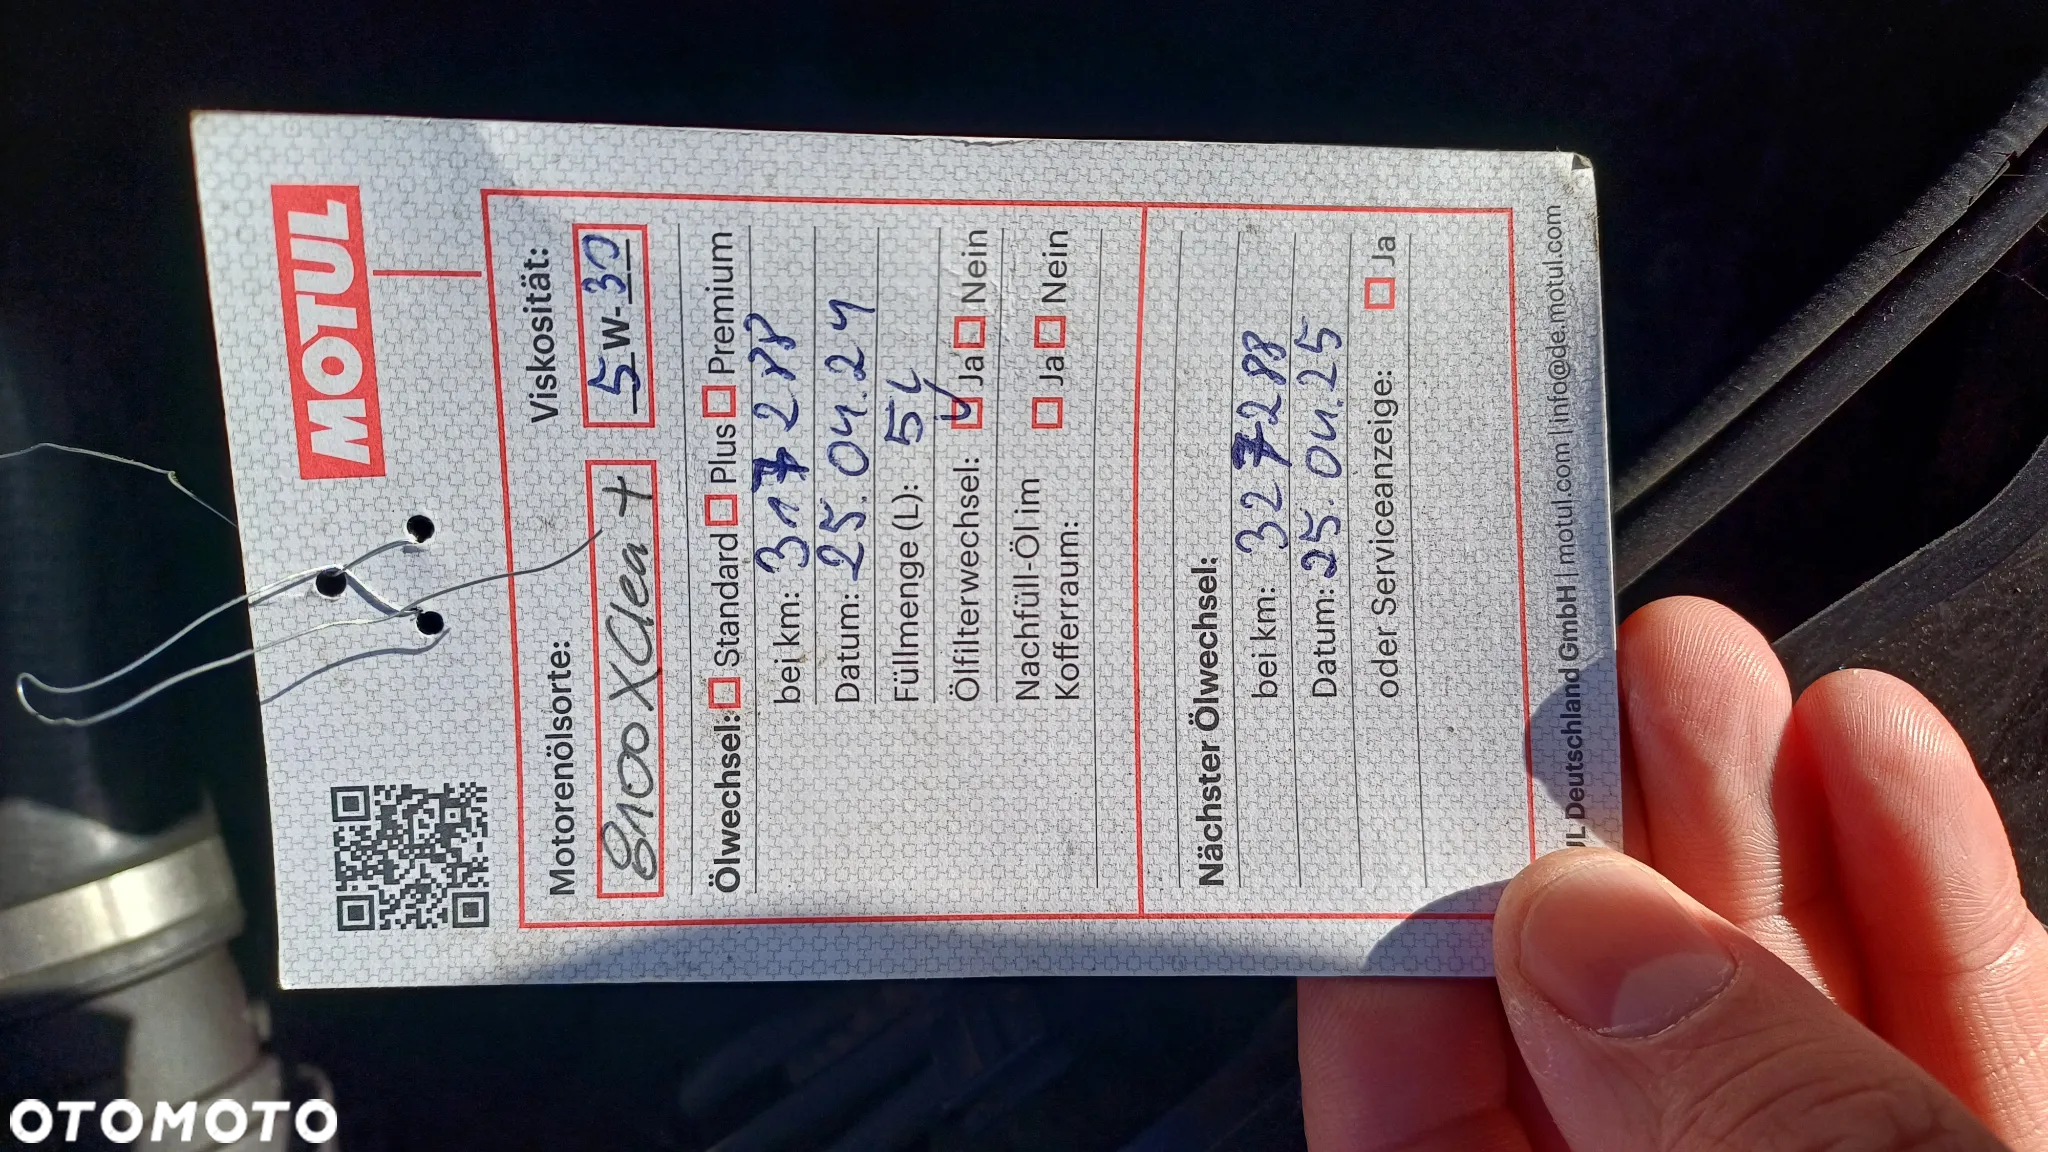 MOTUL
Motorenölsorte: Viskosität:
8100 XClean + 5W-30
Ölwechsel: Standard Plus Premium
bei km: 317288
Datum: 25.04.24
Füllmenge (L): 5L
Ölfilterwechsel: Ja Nein
Nachfüll-Öl im
Kofferraum: Ja Nein
Nächster Ölwechsel:
bei km: 327288
Datum: 25.04.25
oder Serviceanzeige: Ja
UL Deutschland GmbH | motul.com | info@de.motul.com
OTOMOTO